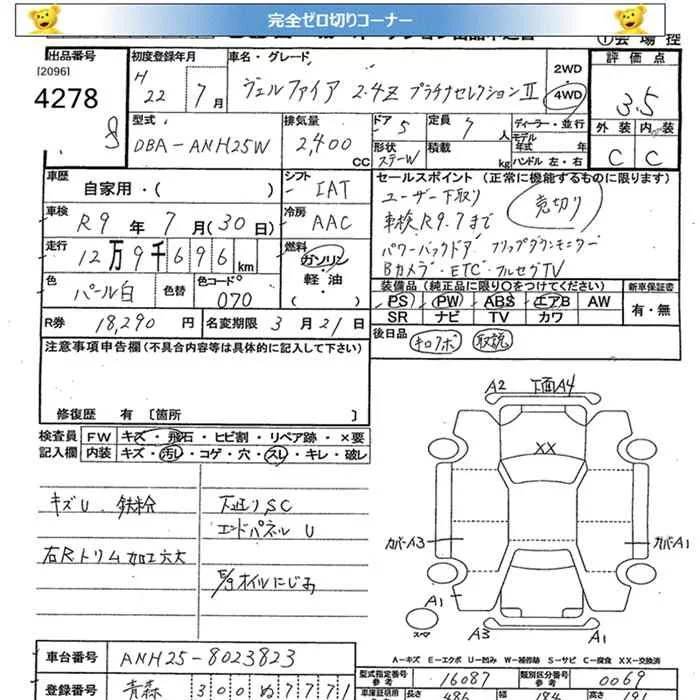 完全ゼロ切りコーナー
出品番号
[2096]
4278
8
初度登録年月
H 22 年 7 月
車名・グレード
ヴェルファイア 2.4Z プラチナセレクションⅡ
2WD
4WD
評価点
3.5
外装 内装
C C
型式
DBA-ANH25W
排気量
2,400 CC
ドア 5
形状 ステーW
定員 7 人
積載 kg
ディーラー・並行
モデル年式 年
ハンドル 左・右
車歴
自家用・( )
シフト
IAT
車検
R9 年 7 月(30日)
冷房
AAC
走行
12万9千696 km
燃料
ガソリン
軽・油
色
パール白
色替
色コード
070
R券 18,290 円
名変期限 3 月 21 日
セールスポイント (正常に機能するものに限ります)
ユーザー下取り
売切り
車検R9.7まで
パワーバックドア フリップダウンモニター
Bカメラ・ETC・フルセグTV
装備品 (純正品に限り○をつけてください)
新車保証書
PS PW ABS エアB AW
SR ナビ TV カワ
有・無
後日品
キロノボ 取説
注意事項申告欄(不具合内容等は具体的に記入して下さい)
修復歴 有〔箇所 〕
検査員記入欄
FW キズ・飛石・ヒビ割・リペア跡・×要
内装 キズ・汚レ・コゲ・穴・スレ・キレ・破レ
キズU 鉄粉
下廻りSC
エンドパネル U
右Rトリム加工穴大
E/gオイルにじみ
A2 下面A4
XX
カバーA3
カバーA1
A1
A1
スペア
A3
A1
A=キズ E=エクボ U=凹み W=補修跡 S=サビ C=腐食 XX=交換済
車台番号
ANH25-8023823
登録番号
青森 300 ぬ 7771
型式指定番号 参考
16087
類別区分番号 参考
0069
長さ 486 幅 184 高さ 191